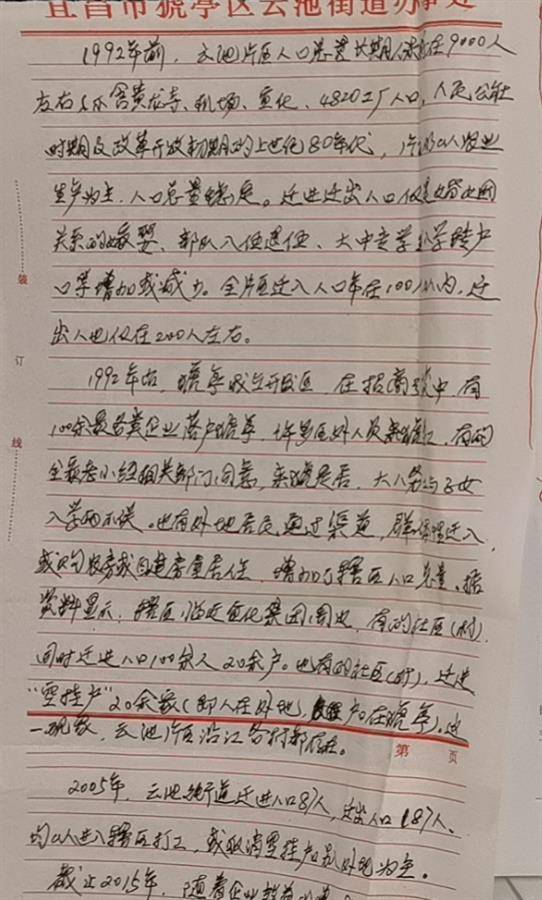 宜昌市猇亭区云池街道办事处
1992年前，云池片区人口总量长期保持在9000人
左右（不含黄龙寺、机场、宣化、4820工厂人口，人民公社
时期及改革开放初期的上世纪80年代，片区以农业
生产为主，人口总量稳定。迁进迁出人口仅是婚姻
关系的嫁娶、部队入伍退伍、大中专学生升学转户
口等增加或减少。全片区迁入人口年在100以内，迁
出人也仅在200人左右。
1992年后，猇亭成立开发区，在招商引资中，有
100余家各类企业落户猇亭，许多区外人员来猇打工，有的
全家老小经相关部门同意，来猇定居，大人务工子女
入学两不误。也有外地居民通过渠道，迁入，
或购买房或自建房屋居住，增加了辖区人口总量。据
资料显示，辖区临近宜化集团周边，有的社区（村），
同时迁进人口100余人20余户。也有的社区（村），迁进
“空挂户”20余家（即人在外地，户口在猇亭）。这
一现象，云池片区沿江各村都存在。
第 页
2005年，云池街道迁进人口87人，迁出人口187人、
均以人进入辖区打工，或取消空挂户口到外地为主。
截止2015年，随着企业
装
订
线